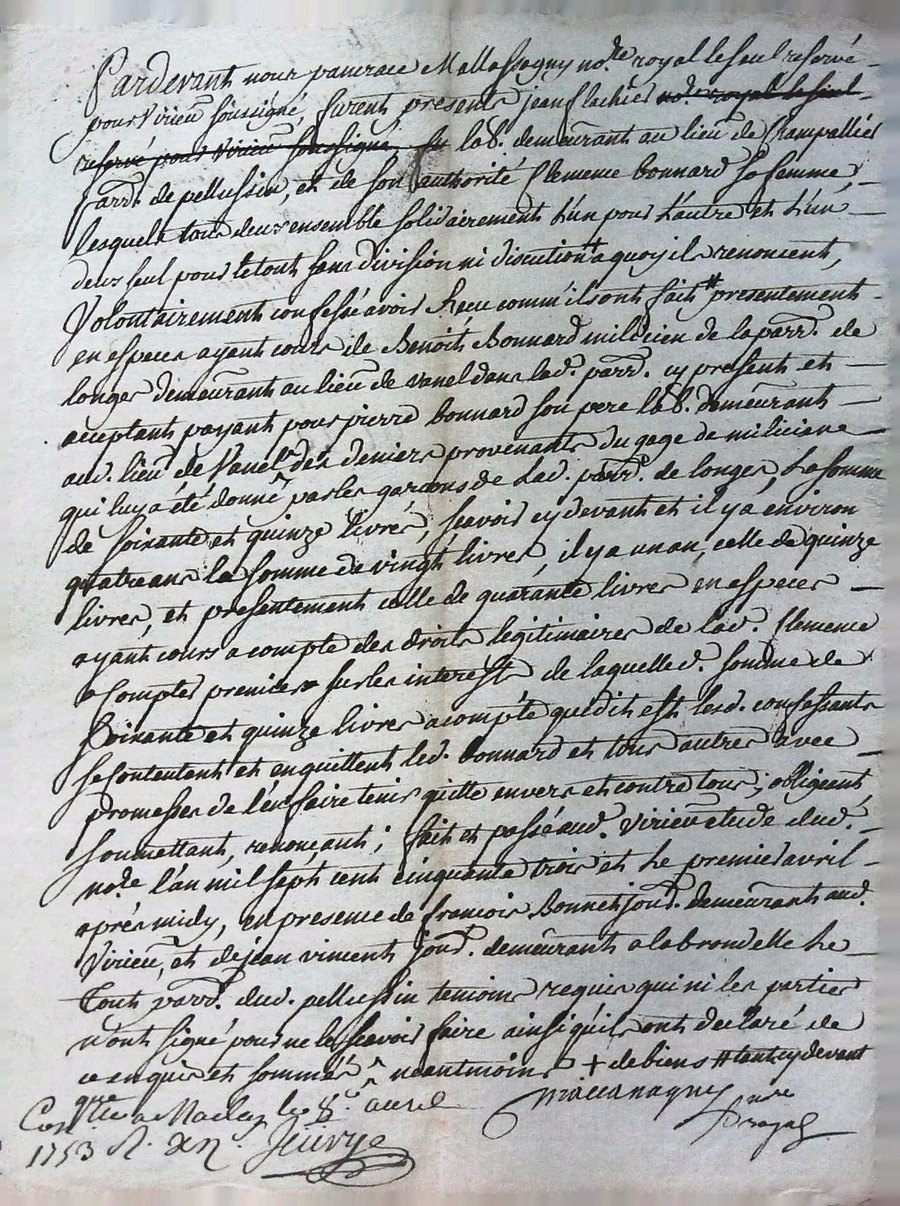 Pardevant nous pancrace Mallassagny no.re royal le seul reservé
pour Virieu soussigné, furent presents jean flachier no.re royal le seul
reservé pour virieu soussigné, fu lab. demeurant au lieu de Champallier
parr. de pellussin, et de son authorité Clemence bonnard sa femme,
lesquels tous deux ensemble solidairement l'un pour l'autre et l'un
deux seul pour le tout sans division ni discution + a quoy ils renoncent,
Volontairement confessé avoir Recu comm'ils ont fait # presentement
en especes ayant cours de Benoit Bonnard milicien de la parr. de
longes demeurant au lieu de vanel dans lad. parr. cy present et
acceptant payant pour pierre bonnard son pere lab. demeurant
aud. lieu de Vanel des deniers provenants du gage de milicien
qui luy a été donné par les garcons de lad. parr. de longes, la somme
de soixante et quinze livres, scavoir cy devant et il y a environ
quatre ans la somme de vingt livres, il y a un an, celle de quinze
livres, et presentement celle de quarante livres en especes
ayant cours a compte des droits legitimaires de lad. Clemence
a Compter premier sur les interest de laquelle d. somme de
soixante et quinze livres a compte que dit est lesd. confessants
se Contentent et en quittent led. bonnard et tous autres avec
promesses de l'en faire tenir quitte envers et contre tous; obligeant
soumettant, renoncant; fait et passé aud. Virieu etude dud.
no.re l'an mil sept cent cinquante trois et le premier avril
après midy, en presence de francois Bonnet jour. demeurant aud.
Virieu, et de jean vincent jour. demeurant a labrondelle le
tout parr. dud. pellussin temoins requis qui ni les parties
n'ont signé pour ne le scavoir faire ainsi qu'ils ont declaré de
ce enquis et sommés ^ neantmoins + de biens # tant cy devant
Mallassagny no.re
royal
Con.trllé a Maclas le 8.e avril
1753 R. Jeurye